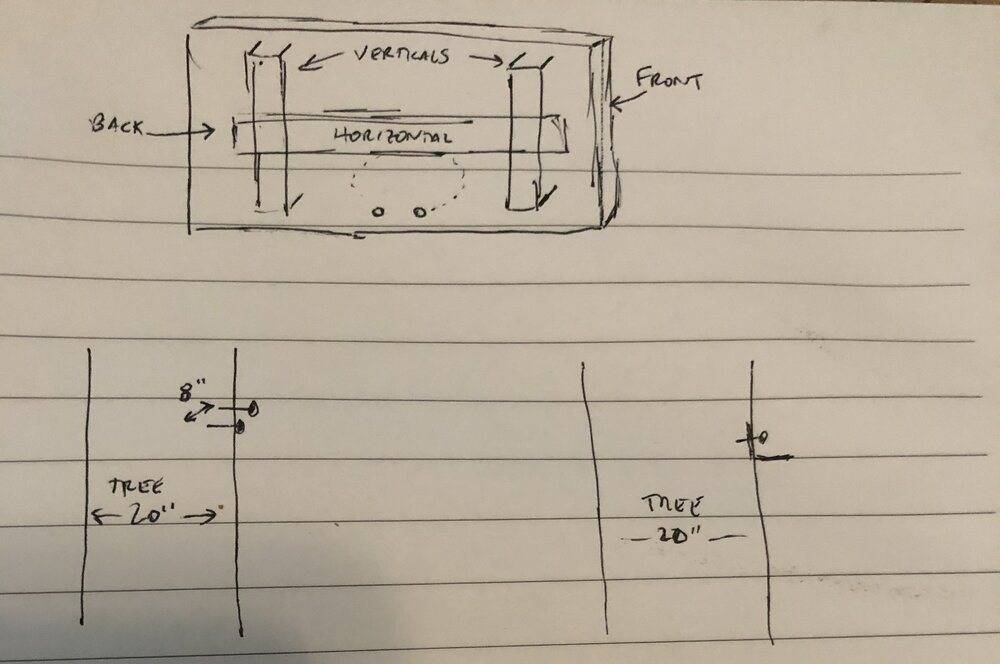 VERTICALS
FRONT
BACK
HORIZONTAL
8"
TREE
20"
TREE
20"